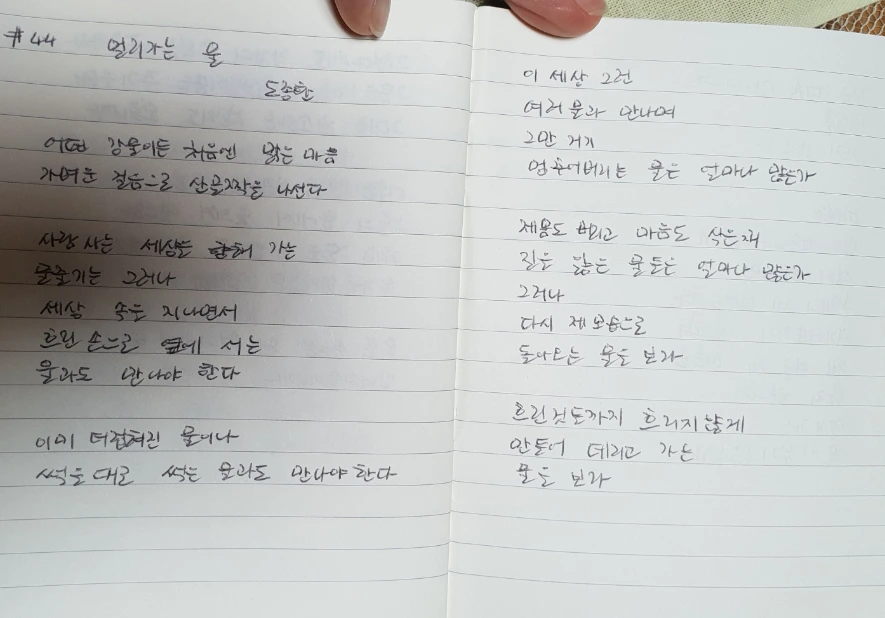 #44 멀리가는 물
도종환
어떤 강물이든 처음엔 맑은 마음
가벼운 걸음으로 산골짝을 나선다
사람 사는 세상을 향해 가는
물줄기는 그러나
세상 속을 지나면서
흐린 손으로 옆에 서는
물과도 만나야 한다
이미 더럽혀진 물이나
썩을대로 썩은 물과도 만나야 한다
이 세상 그런
여러 물과 만나며
그만 거기
멈추어버리는 물은 얼마나 많은가
제몸도 버리고 마음도 삭은채
길을 잃은 물들은 얼마나 많은가
그러나
다시 제모습으로
돌아오는 물을 보라
흐린것들까지 흐리지않게
만들어 데리고 가는
물을 보라